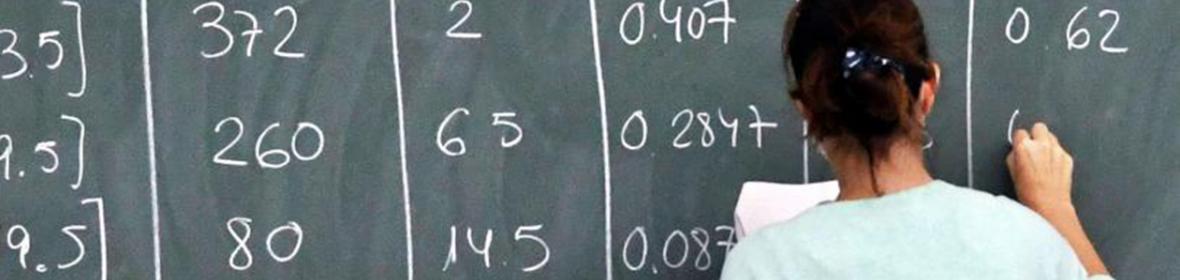 3.5] 372 2 0.407 0.62
9.5] 260 6 5 0 2847
9.5] 80 14.5 0.087